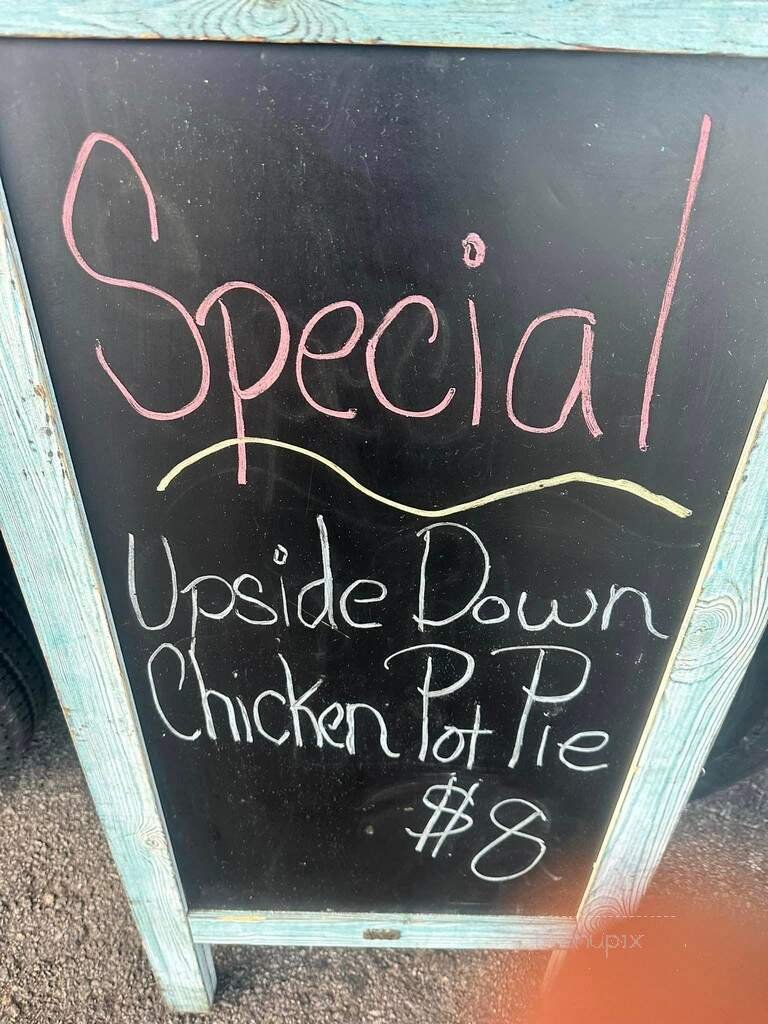 Special
Upside Down
Chicken Pot Pie
$8